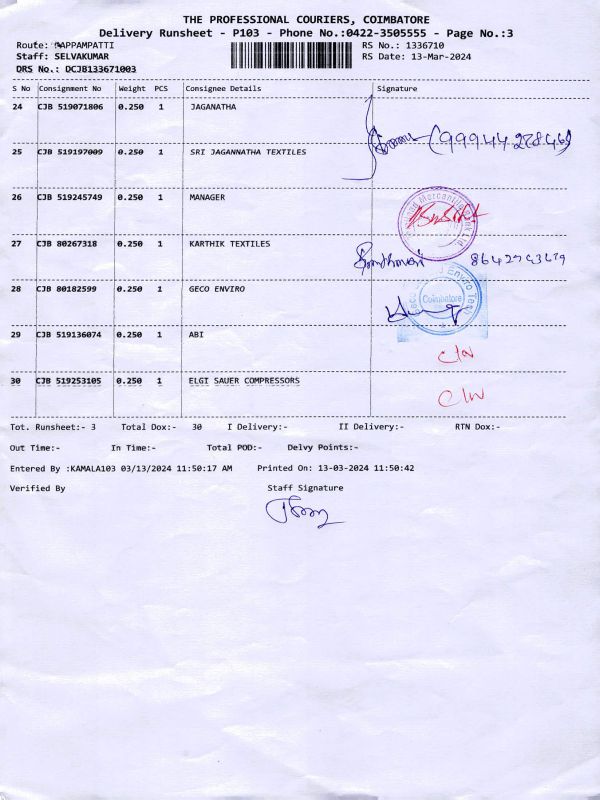 THE PROFESSIONAL COURIERS, COIMBATORE
Delivery Runsheet - P103 - Phone No.:0422-3505555 - Page No.:3
Route: PAPPAMPATTI RS No.: 1336710
Staff: SELVAKUMAR RS Date: 13-Mar-2024
DRS No.: DCJB133671003
S No Consignment No Weight PCS Consignee Details Signature
24 CJB 519071806 0.250 1 JAGANATHA
(9994427846)
25 CJB 519197009 0.250 1 SRI JAGANNATHA TEXTILES
26 CJB 519245749 0.250 1 MANAGER
Mercantile Bank Ltd
27 CJB 80267318 0.250 1 KARTHIK TEXTILES
28 CJB 80182599 0.250 1 GECO ENVIRO
Geco Enviro Tech
Coimbatore
29 CJB 519136074 0.250 1 ABI
30 CJB 519253105 0.250 1 ELGI SAUER COMPRESSORS
Tot. Runsheet:- 3 Total Dox:- 30 I Delivery:- II Delivery:- RTN Dox:-
Out Time:- In Time:- Total POD:- Delvy Points:-
Entered By :KAMALA103 03/13/2024 11:50:17 AM Printed On: 13-03-2024 11:50:42
Verified By Staff Signature